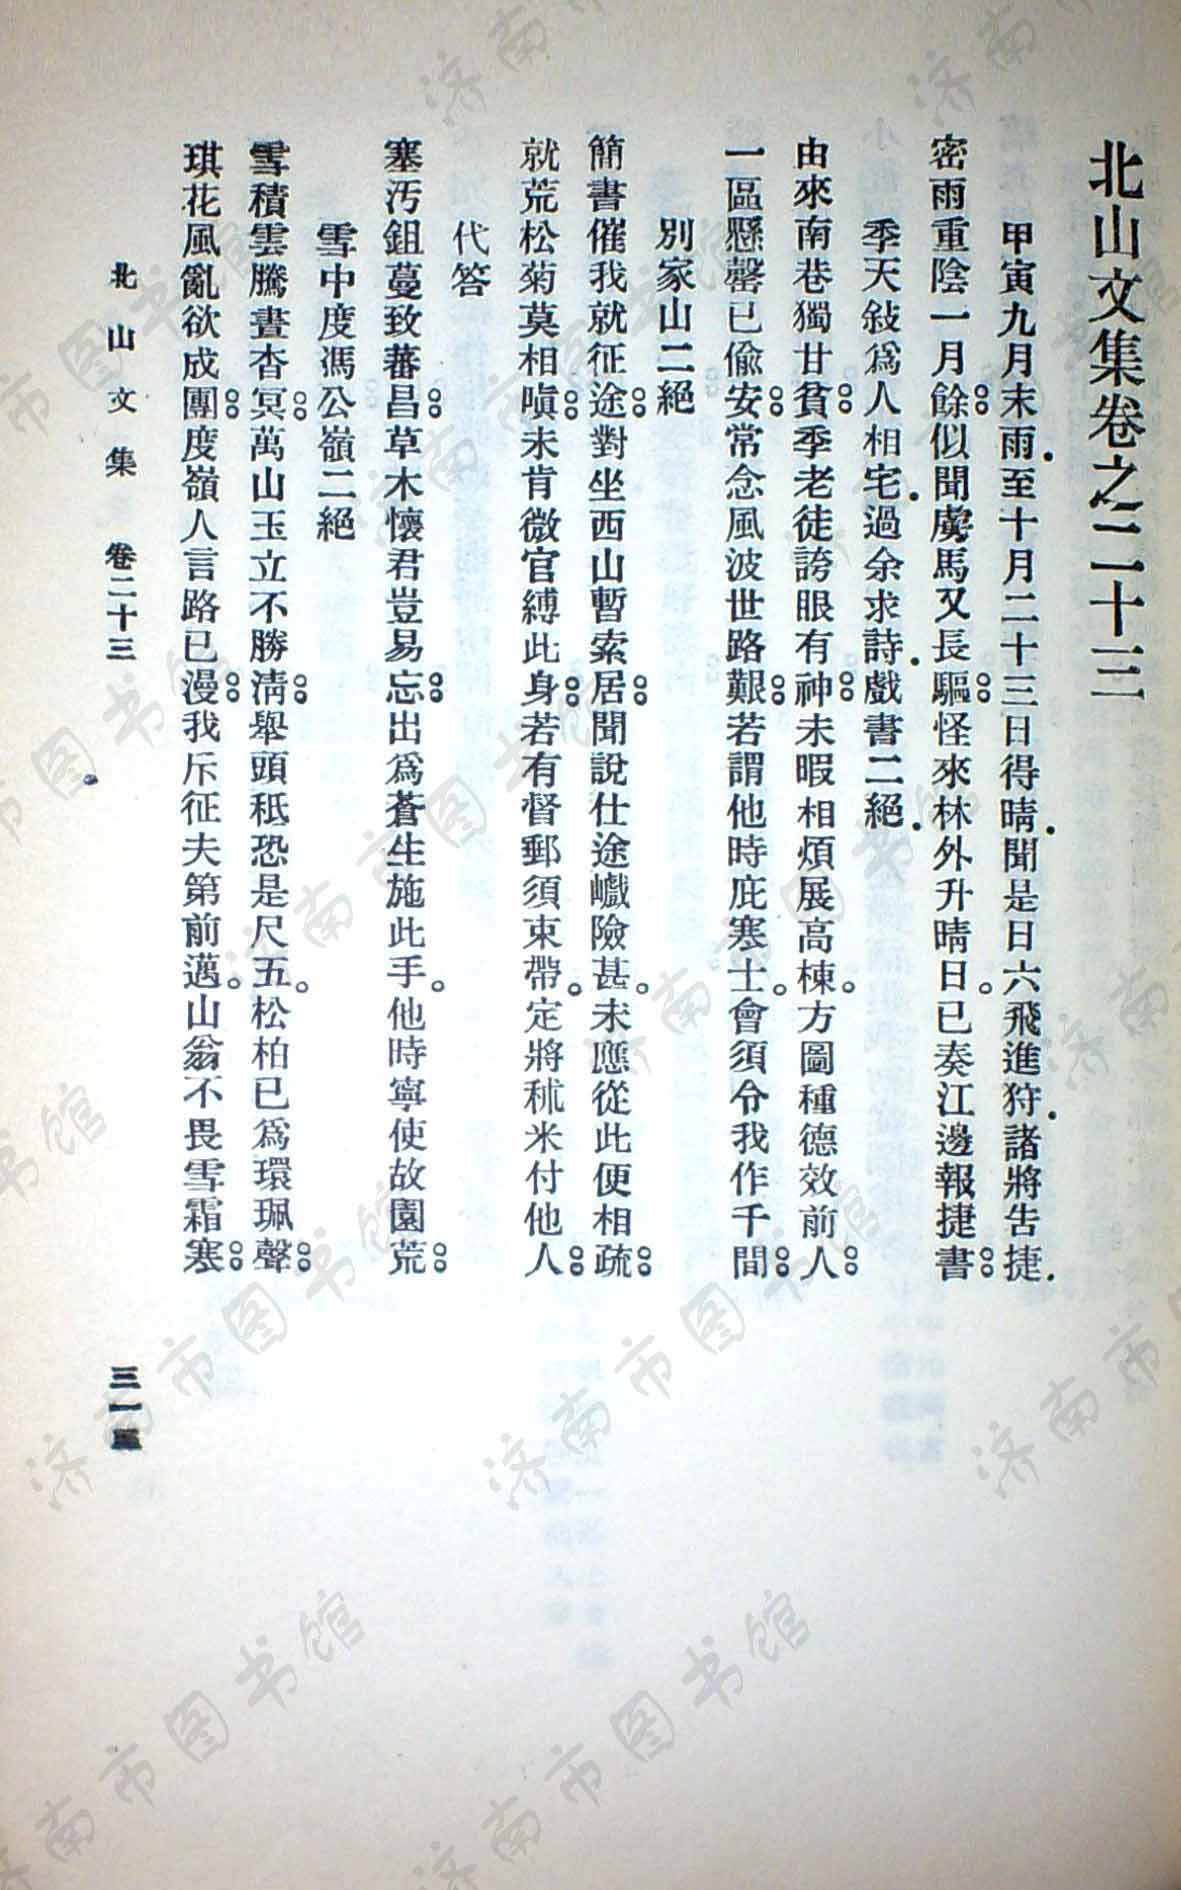 北山文集卷之二十三
甲寅九月末雨至十月二十三日得晴聞是日六飛進狩諸將告捷
密雨重陰一月餘似聞虜馬又長驅怪來林外升晴日已奏江邊報捷書
季天敍爲人相宅過余求詩戲書二絕
由來南巷獨甘貧季老徒誇眼有神未暇相煩展高棟方圖種德效前人
一區懸罄已偸安常念風波世路艱若謂他時庇寒士會須令我作千間
別家山二絕
簡書催我就征途對坐西山暫索居聞說仕途巇險甚未應從此便相疏
就荒松菊莫相嗔未肯微官縛此身若有督郵須束帶定將秫米付他人
代答
塞汚鉏蔓致蕃昌草木懷君豈易忘出爲蒼生施此手他時寧使故園荒
雪中度馮公嶺二絕
雪積雲騰晝杳冥萬山玉立不勝淸舉頭秪恐是尺五松柏已爲環珮聲
琪花風亂欲成團度嶺人言路已漫我斥征夫第前邁山翁不畏雪霜寒
北山文集 卷二十三
三一
济南市图书馆